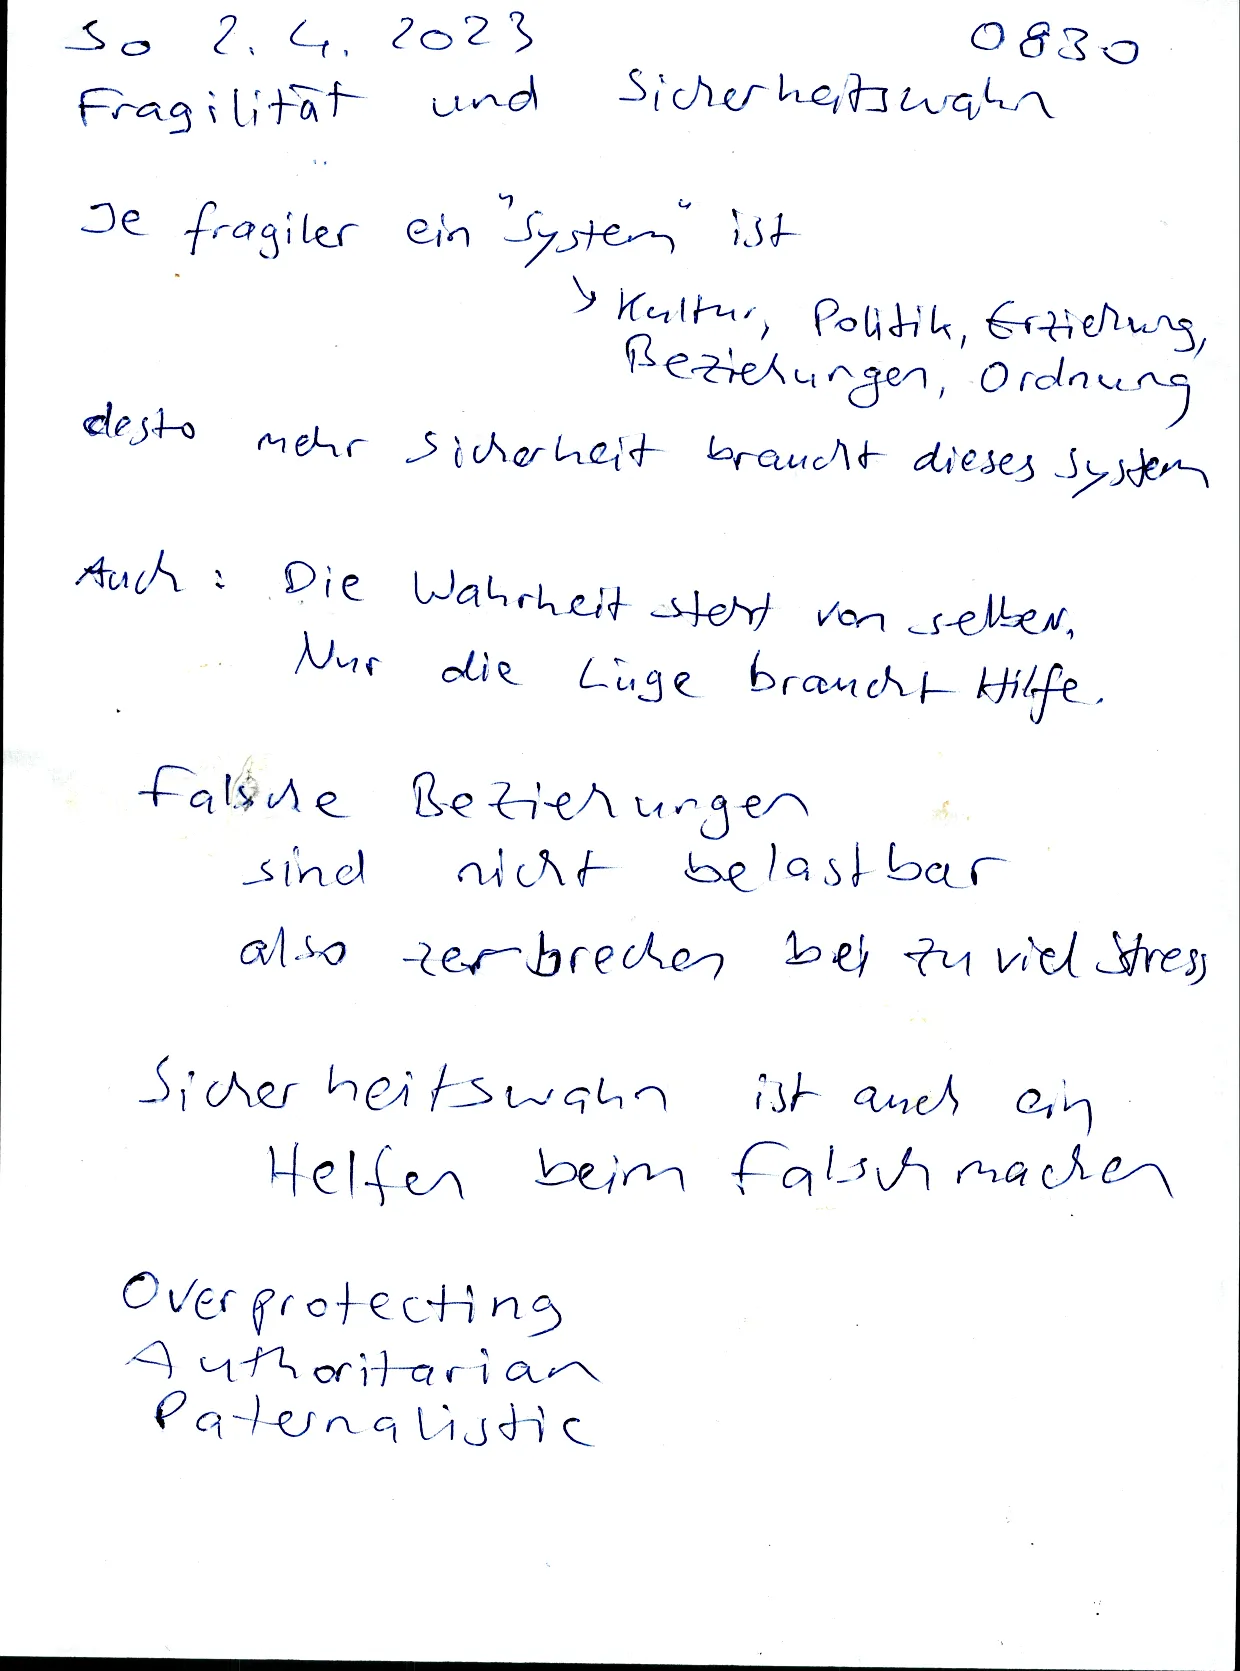 So 2. 4. 2023 0830
Fragilität und Sicherheitswahn
Je fragiler ein "System" ist
↘ Kultur, Politik, Erziehung,
Beziehungen, Ordnung
desto mehr Sicherheit braucht dieses System
Auch: Die Wahrheit steht von selber.
Nur die Lüge braucht Hilfe.
Falsche Beziehungen
sind nicht belastbar
also zerbrechen bei zu viel Stress
Sicherheitswahn ist auch ein
Helfen beim Falschmachen
Overprotecting
Authoritarian
Paternalistic